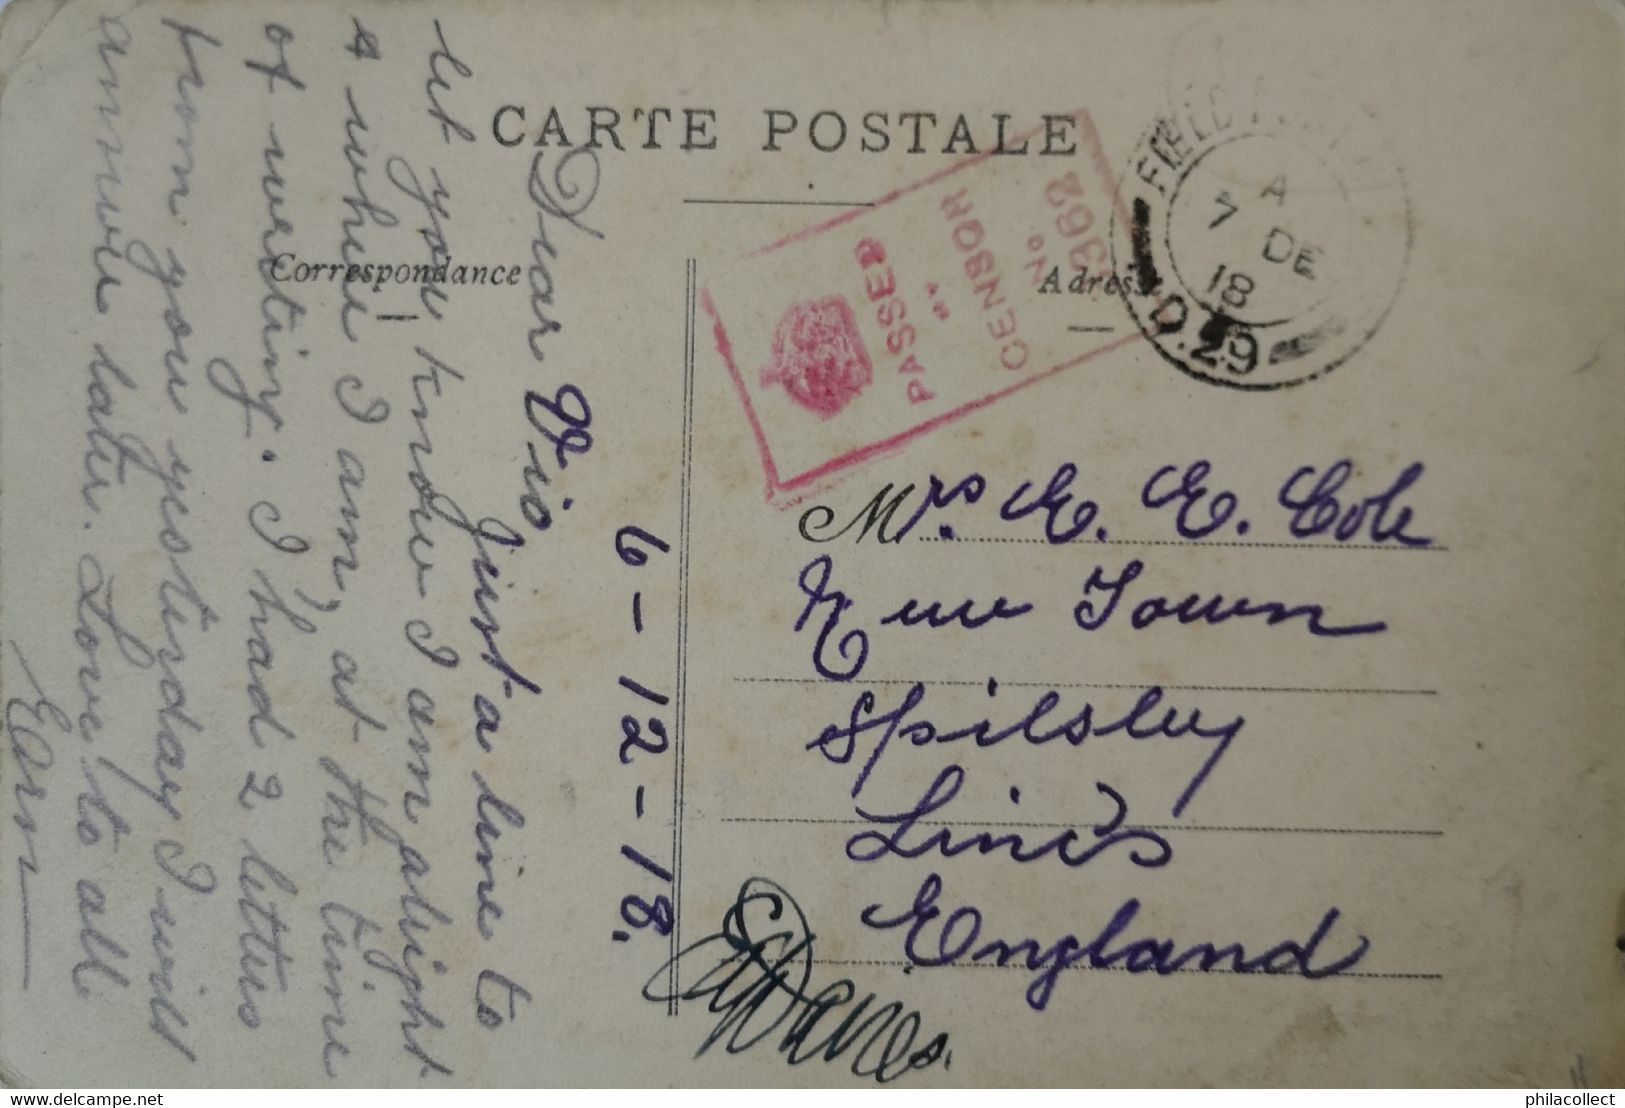 CARTE POSTALE
Correspondance
Adresse
PASSED
BY
CENSOR
No
3362
FIELD
A
7 DE
18
D.29
6-12-18.
Dear Vio
Just a line to
let you know I am alright
& where I am, at the time
of writing. I had 2 letters
from you yesterday I will
answer later. Love to all
Ern
Mrs. E. E. Cole
New Town
Spilsby
Lincs
England
delcampe.net
philacollect